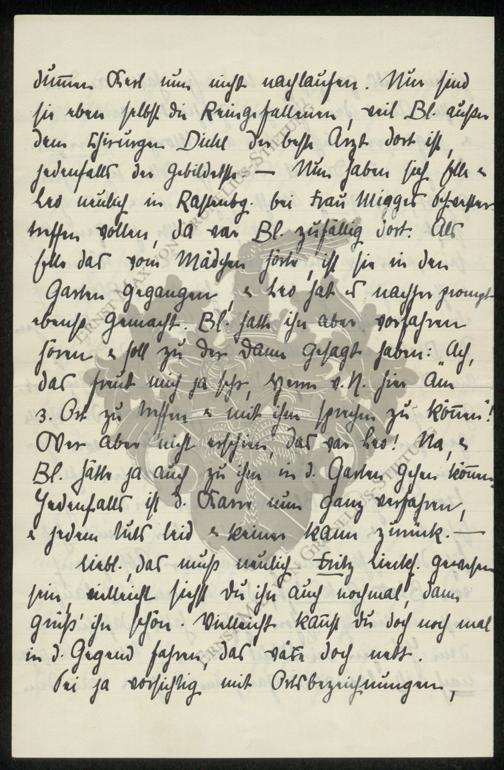 dummen Kerl nun nicht nachlaufen. Nun sind
sie eben selbst die Reingefallenen, weil Bl. außer
dem Chirurgen Dickl der beste Arzt dort ist,
jedenfalls der gebildetste — Nun haben sich Elle &
Leo neulich in Rastenbg. bei Frau Migges
treffen wollen, da war Bl. zufällig dort. Als
Elle das vom Mädchen hörte, ist sie in den
Garten gegangen, & Leo hat es nachher prompt
ebenso gemacht. Bl. hatte ihn aber vorfahren
hören & soll zu der Dame gesagt haben: "Ach,
das freut mich ja sehr, Herrn v. K. hier am
3. Ort zu treffen & mit ihm sprechen zu können"!
Wer aber nicht erschien, das war Leo! Na, &
Bl. hätte ja auch zu ihm in d. Garten gehen können
Jedenfalls ist d. Karre nun ganz verfahren,
& jedem tuts leid & keiner kann zurück. —
Liebl., das muß neulich Fritz gewesen
sein, vielleicht siehst du ihn auch nochmal, dann
grüß' ihn schön. Vielleicht kannst du doch noch mal
in d. Gegend fahren, das wäre doch nett.
Sei ja vorsichtig mit Ortsbezeichnungen,